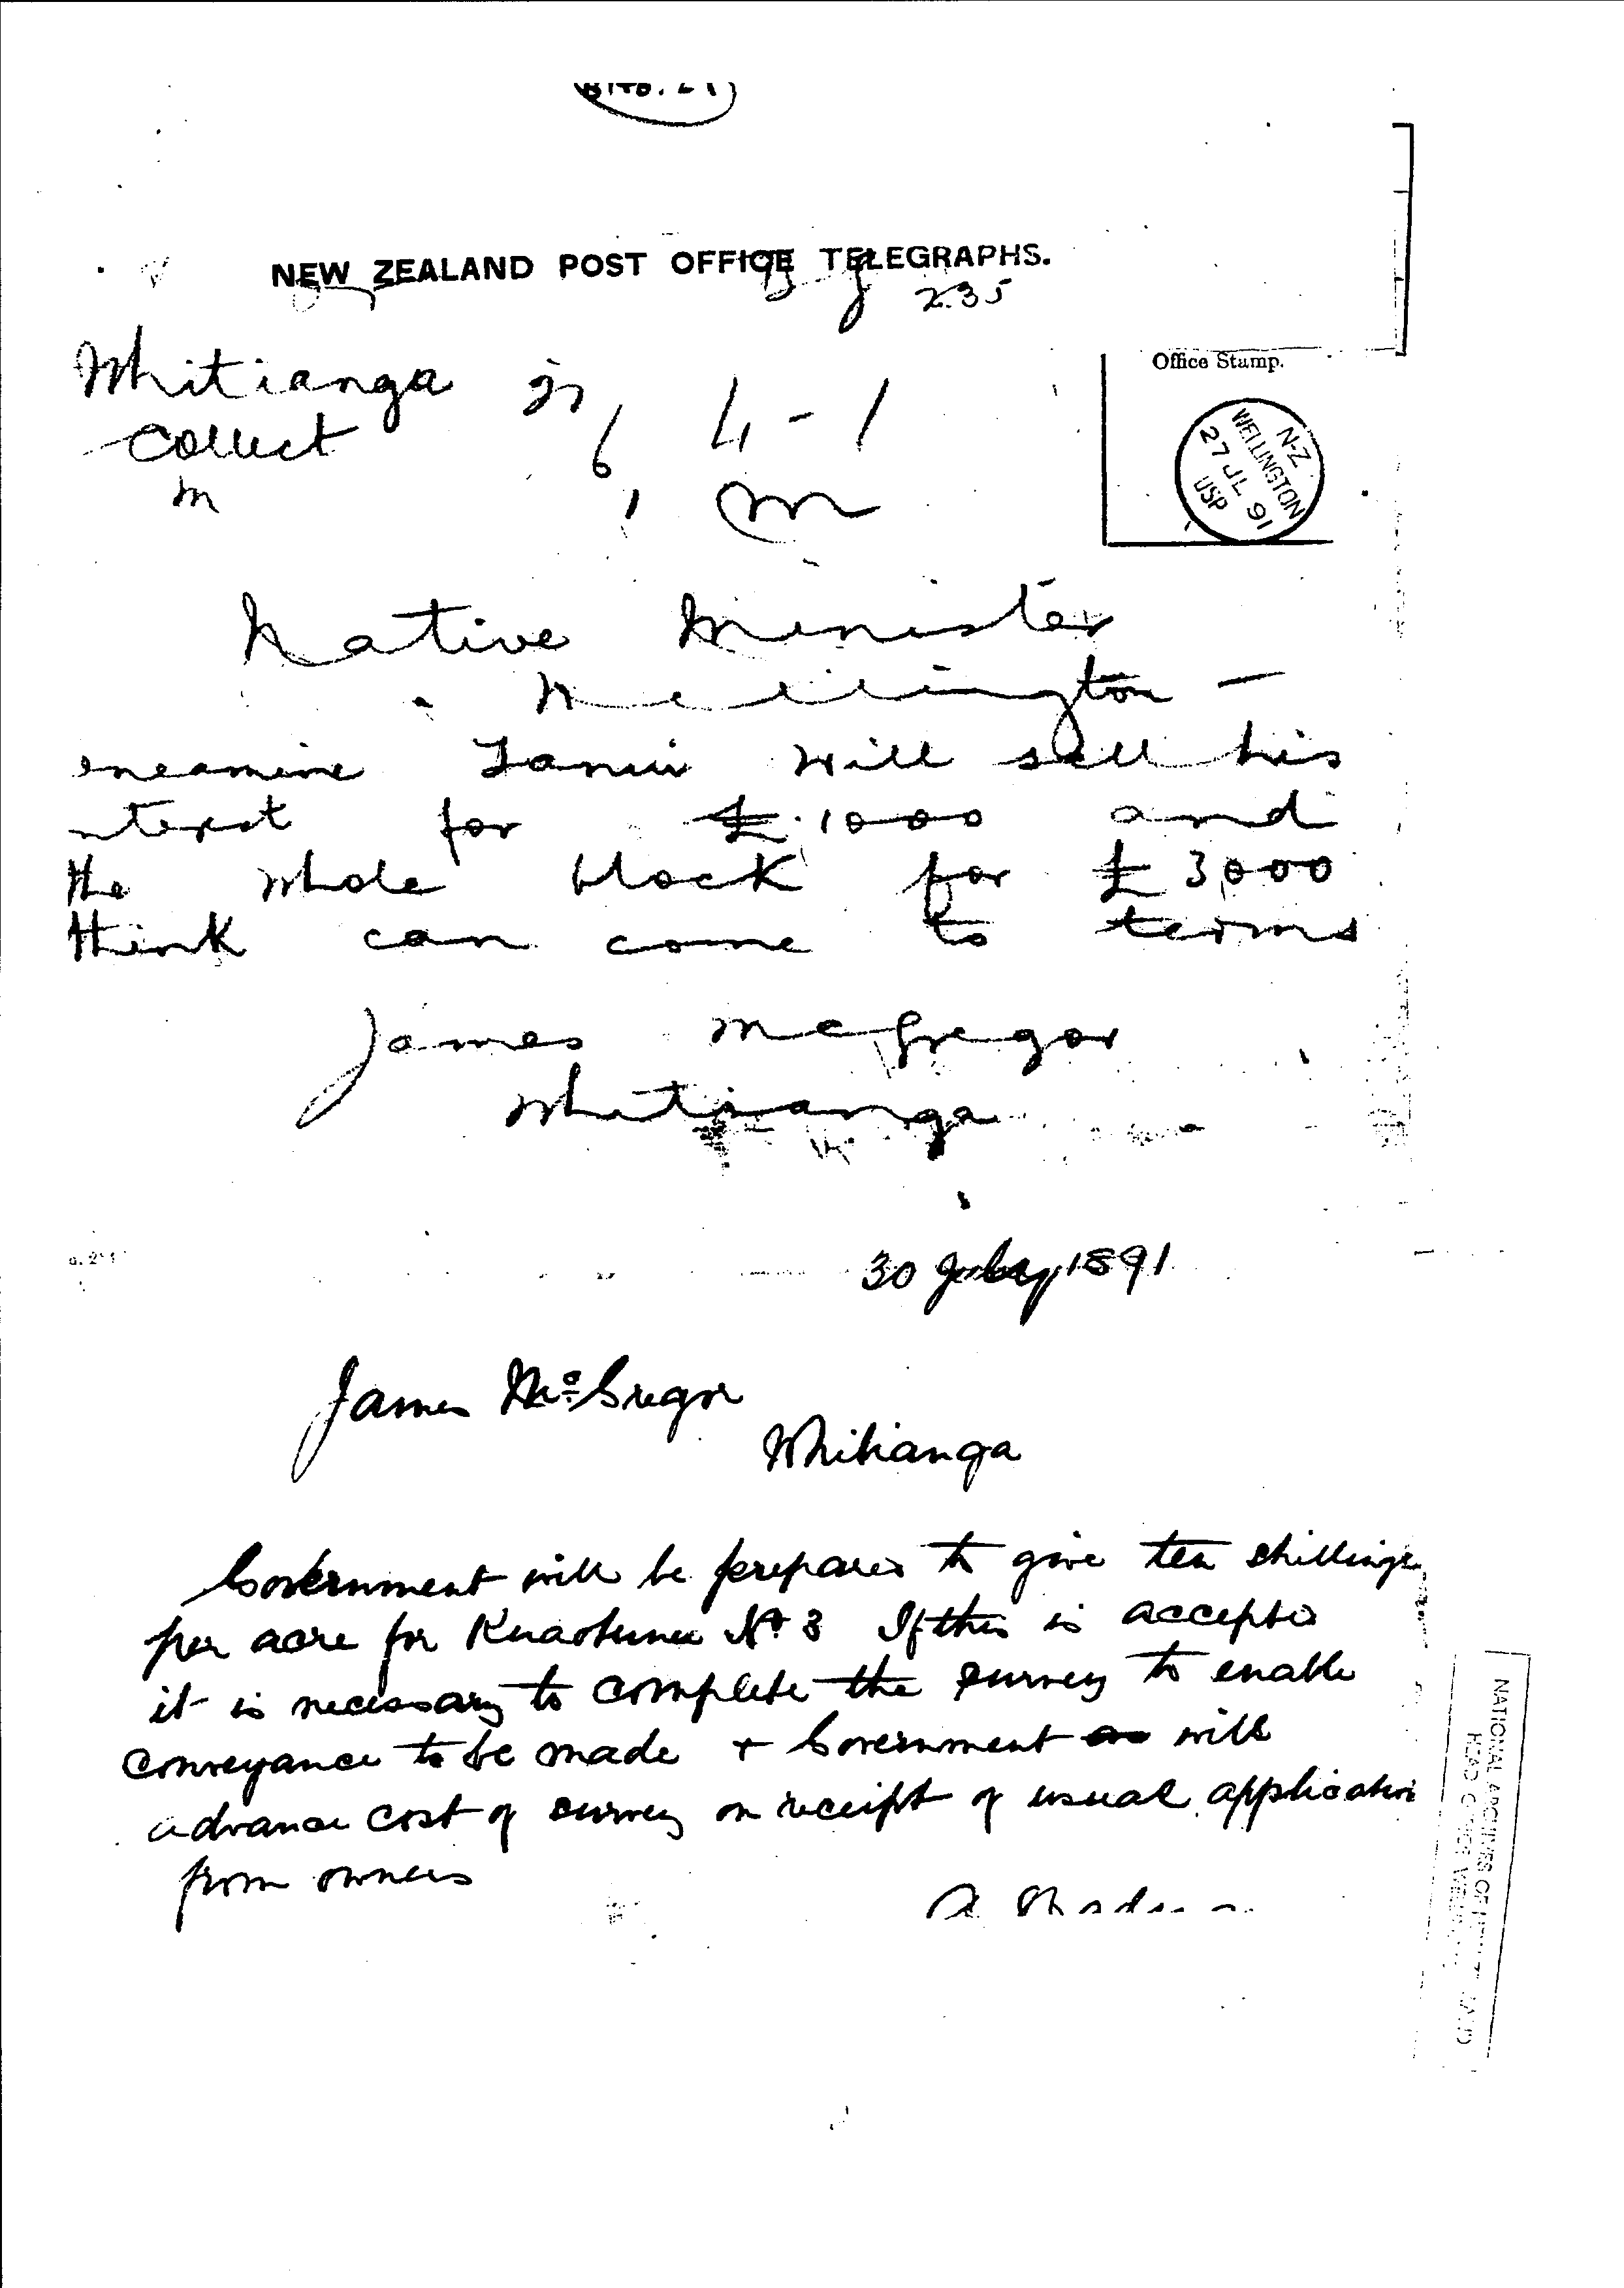 NEW ZEALAND POST OFFICE TELEGRAPHS.
235
Whitianga
Collect 4-1
m m
Office Stamp.
N-Z
WELLINGTON
27 JL 91
USP
Native Minister
Wellington —
will sell his
nterest for £1000 and
the whole block for £3000
think can come to terms
James McGregor
Whitianga
30 July 1891
James McGregor
Whitianga
Government will be prepared to give ten shillings
per acre for Kuaotunu No 3 If this is accepted
it is necessary to complete the survey to enable
conveyance to be made + Government will
advance cost of survey on receipt of usual application
from owners
NATIONAL ARCHIVES OF
HEAD OFFICE